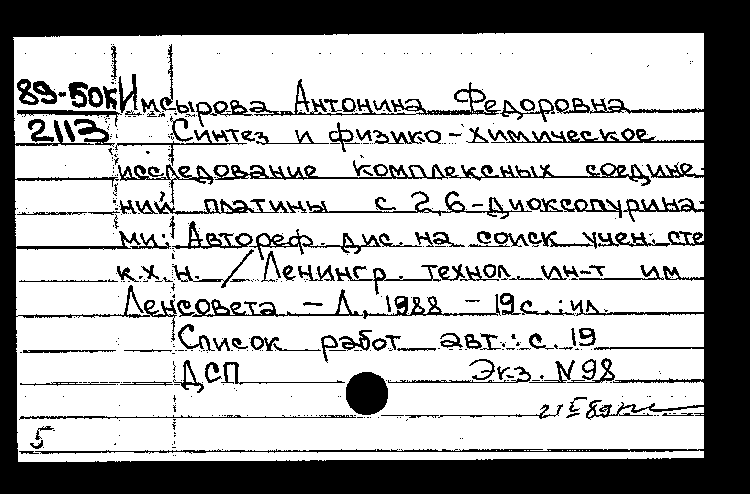 89-50к Имсырова Антонина Федоровна
2113 Синтез и физико-химическое
исследование комплексных соедине-
ний платины с 2,6-диоксопурина-
ми: Автореф. дис. на соиск учен. сте
к.х.н. / Ленингр. технол. ин-т им
Ленсовета. - Л., 1988 - 19с.: ил.
Список работ авт.: с. 19
ДСП Экз. N98
5